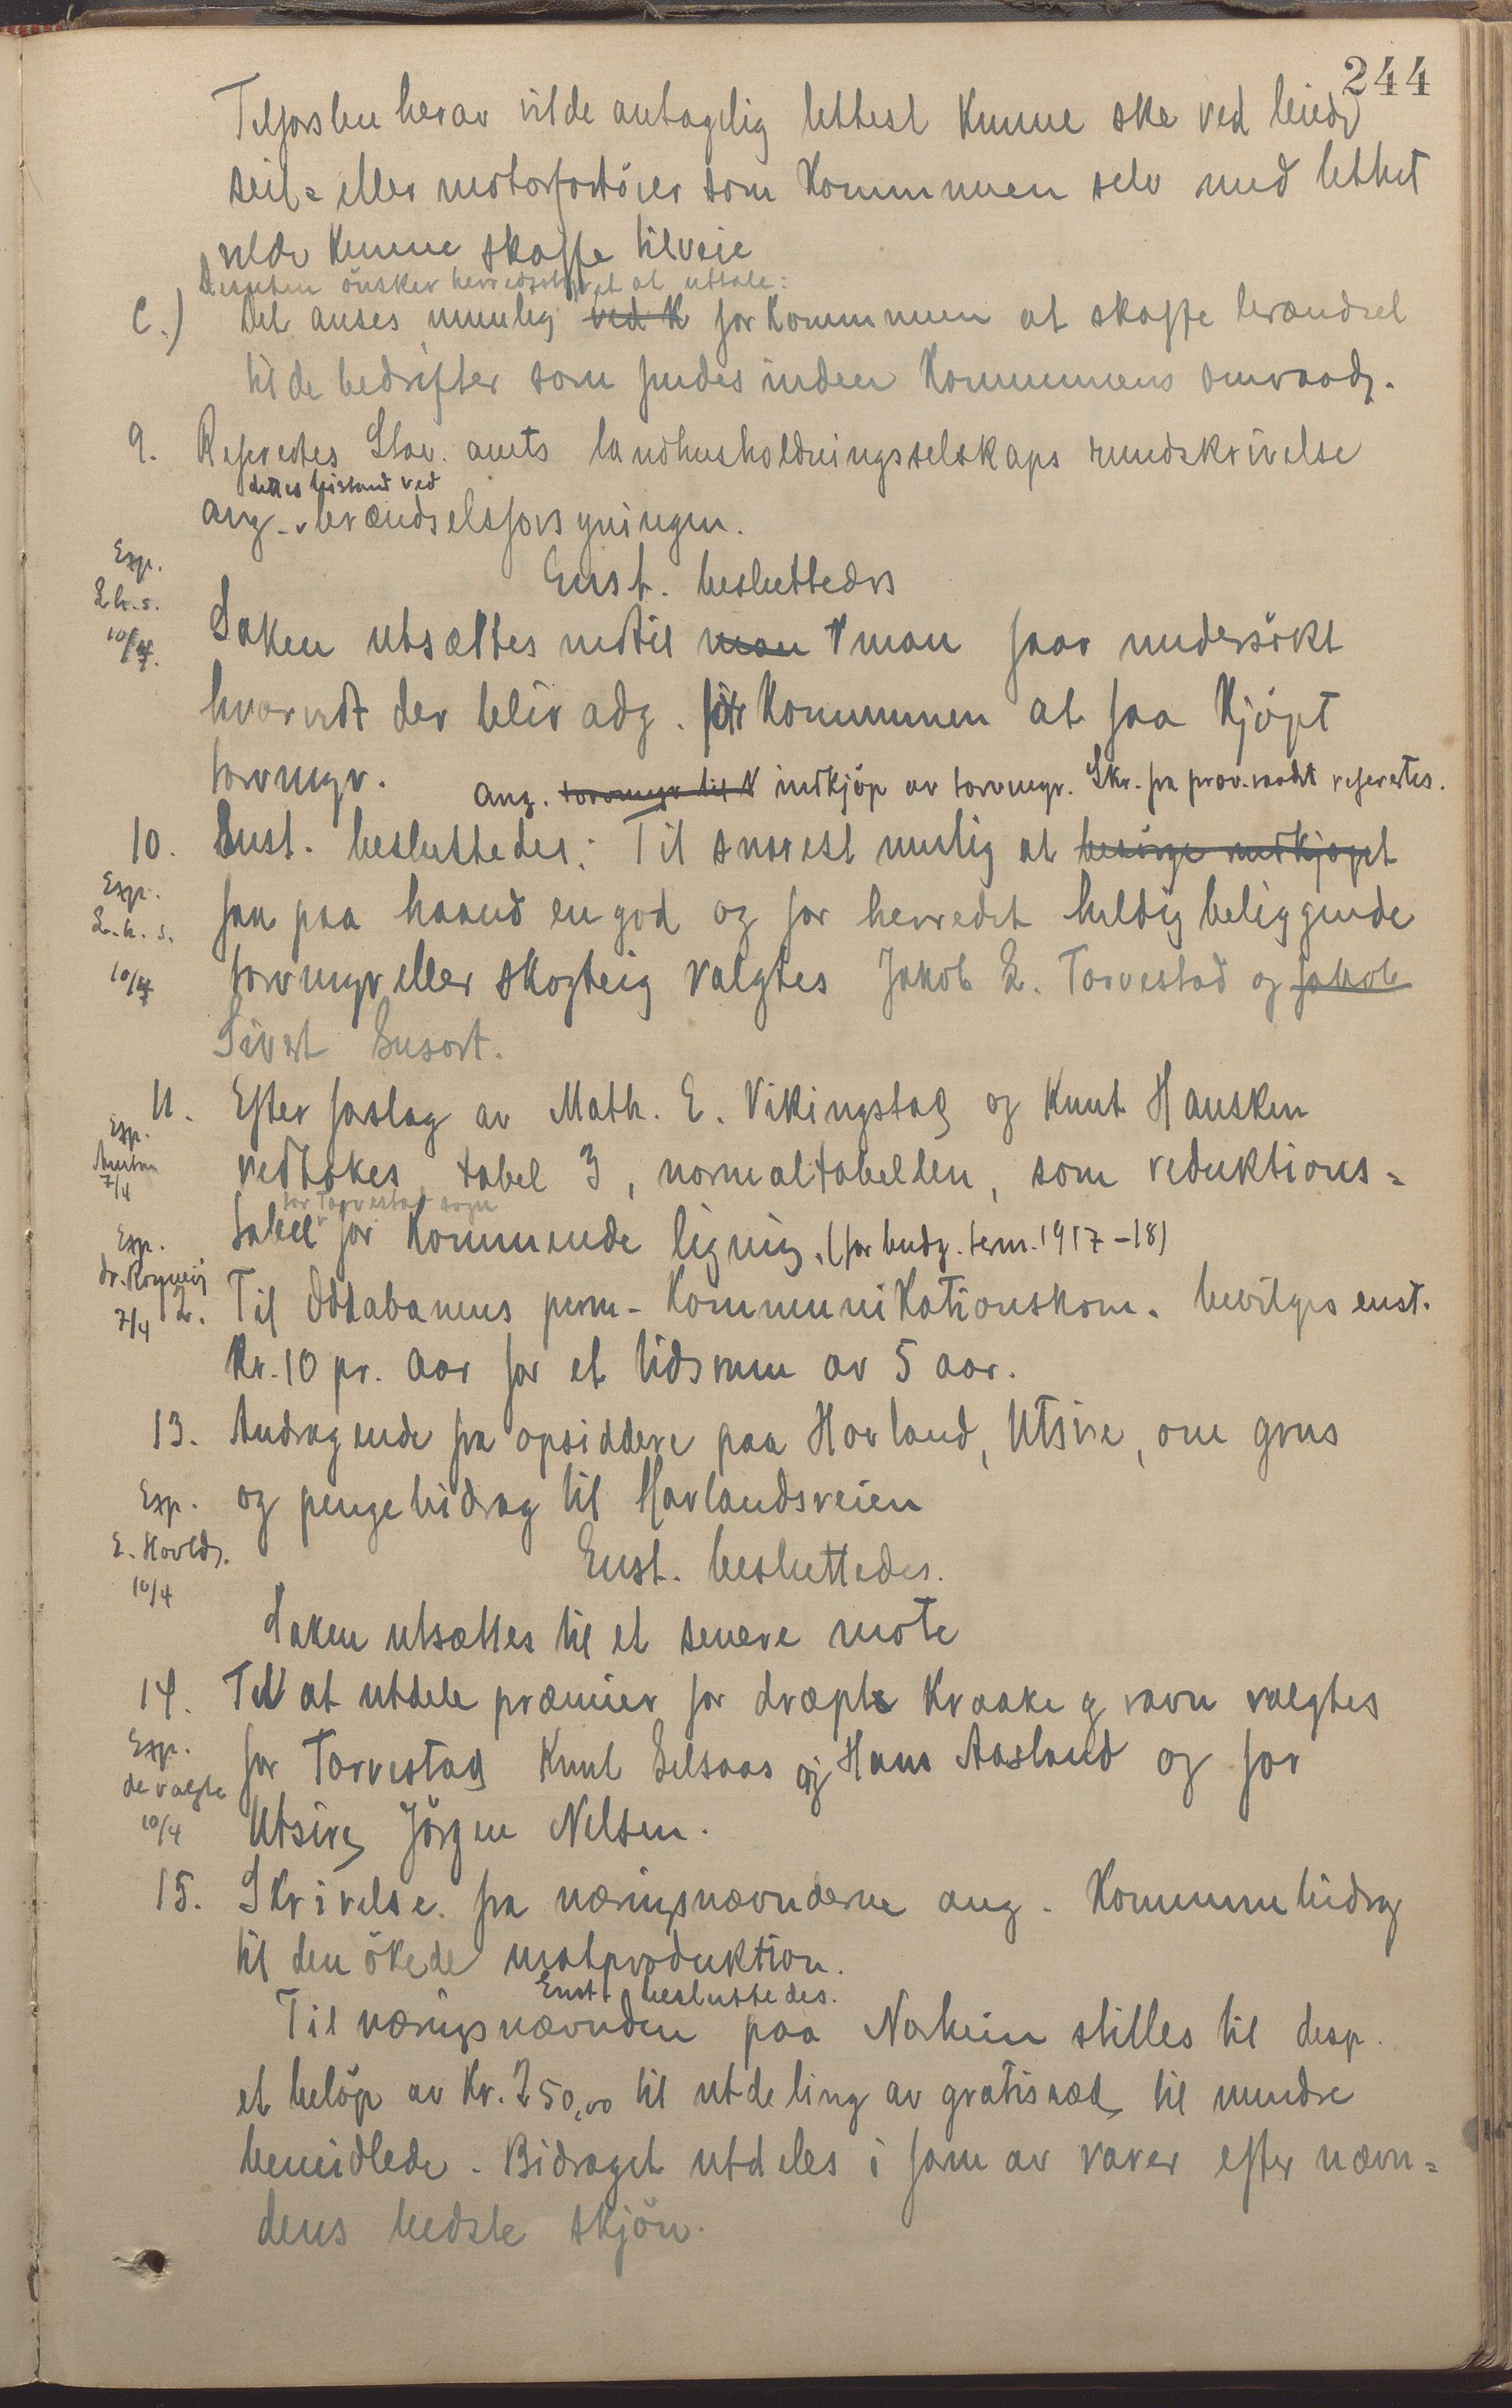 244
Tilførslen herav vilde antagelig lettest kunne ske ved leiede
seil= eller motorfartöier som kommunen selv med lethet
vilde kunne skaffe tilveie
Desuten önsker herredsstyret at uttale:
C.) Det anses umulig ved K for kommunen at skaffe brændsel
til de bedrifter som findes inden kommunens omraade.
9. Refertes Stav. amts landhusholdningsselskaps rundskrivelse
dettes bistand ved
ang. brændselsforsyningen.
Enst. besluttedes
Exp.
L.h.s.
10/4.
Saken utsættes indtil man man faar undersökt
hvorvidt der blir adg. for kommunen at faa kjöpt
torvmyr.
ang. torvmyr til K indkjöp av torvmyr. Skr. fra prov.raadet refertes.
10. Enst. besluttedes: Til snarest mulig at besörge indkjøpet
Exp.
L.h.s.
10/4
faa paa haand en god og for herredet heldig beliggende
torvmyr eller skogteig valgtes Jakob L. Torvestad og Jakob
Sivert Susort.
11. Efter forslag av Math. E. Vikingstad og Knut Hausken
Exp.
Amtm
7/4
vedtokes tabel 3, normaltabellen, som reduktions=
for Torvestad sogn
tabel for kommende ligning. (for budg. term. 1917-18)
Exp.
7/4
12. Til Oddabanens perm. kommunikationskom. bevilges enst.
Kr. 10 pr. aar for et tidsrum av 5 aar.
13. Andragende fra opsiddere paa Hovland, Utsire, om grus
og pengebidrag til Hovlandsveien
Exp.
E. Hovld.
10/4
Enst. besluttedes.
Saken utsættes til et senere möte
14. Til at utdele præmier for dræpte kraake og ravn valgtes
Exp.
de valgte
10/4
for Torvestad Knut Eilsaas og Hans Aasland og for
Utsire, Jörgen Nilsen.
15. Skrivelse fra næringsnævnderne ang. kommunebidrag
til den ökede matproduktion.
Enst. besluttedes.
Til næringsnævnden paa Norheim stilles til disp.
et belöp av Kr. 250,00 til utdeling av gratis sæd til mindre
bemidlede. Bidraget utdeles i form av varer efter nævn=
dens bedste skjön.